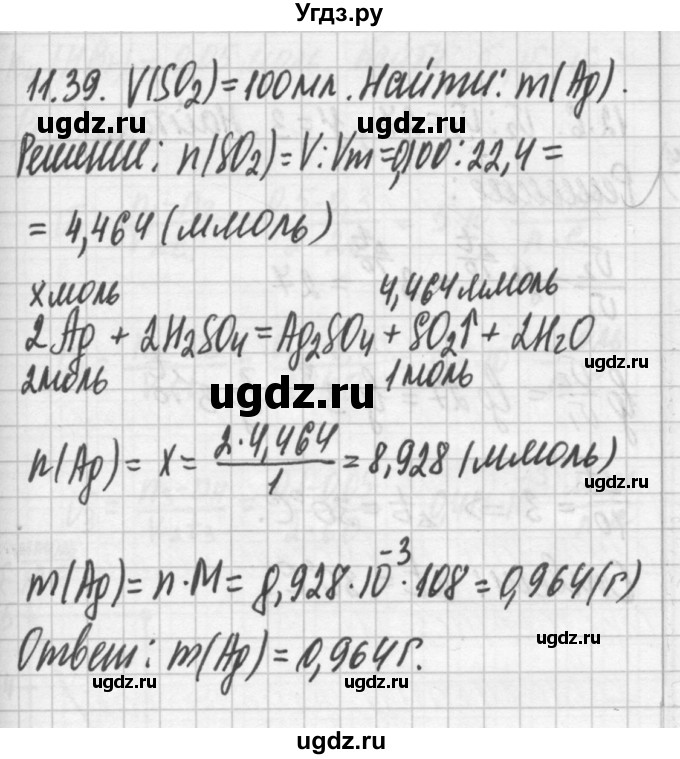 Угдз.ру
11.39. V(SO₂)=100мл. Найти: m(Ag).
ugdz.ru ugdz.ru
Решение: n(SO₂)=V:Vm=0,100:22,4=
ugdz.ru
= 4,464 (ммоль)
x моль 4,464 ммоль
2Ag + 2H₂SO₄ = Ag₂SO₄ + SO₂↑ + 2H₂O
ugdz.ru
2моль 1моль
ugdz.ru
n(Ag) = x = 2·4,464/1 = 8,928 (ммоль)
ugdz.ru
m(Ag) = n·M = 8,928·10⁻³·108 = 0,964 (г)
ugdz.ru
Ответ: m(Ag) = 0,964г.
ugdz.ru ugdz.ru
ugdz.ru